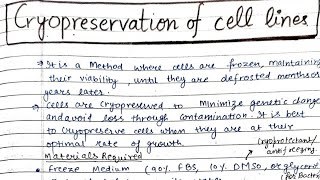 Cryopreservation of cell lines
→ It is a Method where cells are frozen, maintaining
their viability, until they are defrosted months or
years later.
→ Cells are Cryopreserved to Minimize genetic change
and avoid loss through contamination. It is best
to Cryopreserve cells when they are at their
optimal rate of growth.
cryoprotectant/
antifreezing
Materials Required
Freeze Medium (90% FBS, 10% DMSO, or glycerol
(for Bacteri